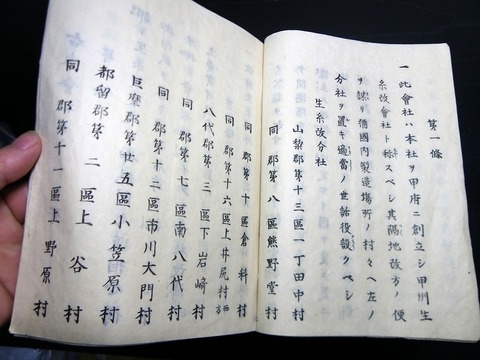 第一條
一 此會社ハ本社ヲ甲府ニ創立シ甲州生
糸改會社ト称スベシ其隔地改方ノ便
ヲ謀リ國内製造場所ノ村々ヘ左ノ
分社ヲ置キ適當ノ世話役設クベシ
生糸改分社
山梨郡第十三區一丁田中村
同 郡第八區熊野堂村
同 郡第十區倉科村
同 郡第十六區上井尻村
八代郡第三區下岩崎村
同 郡第七區南八代村
同 郡第十二區市川大門村
巨摩郡第廿五區小笠原村
都留郡第二區上谷村
同 郡第十一區上野原村